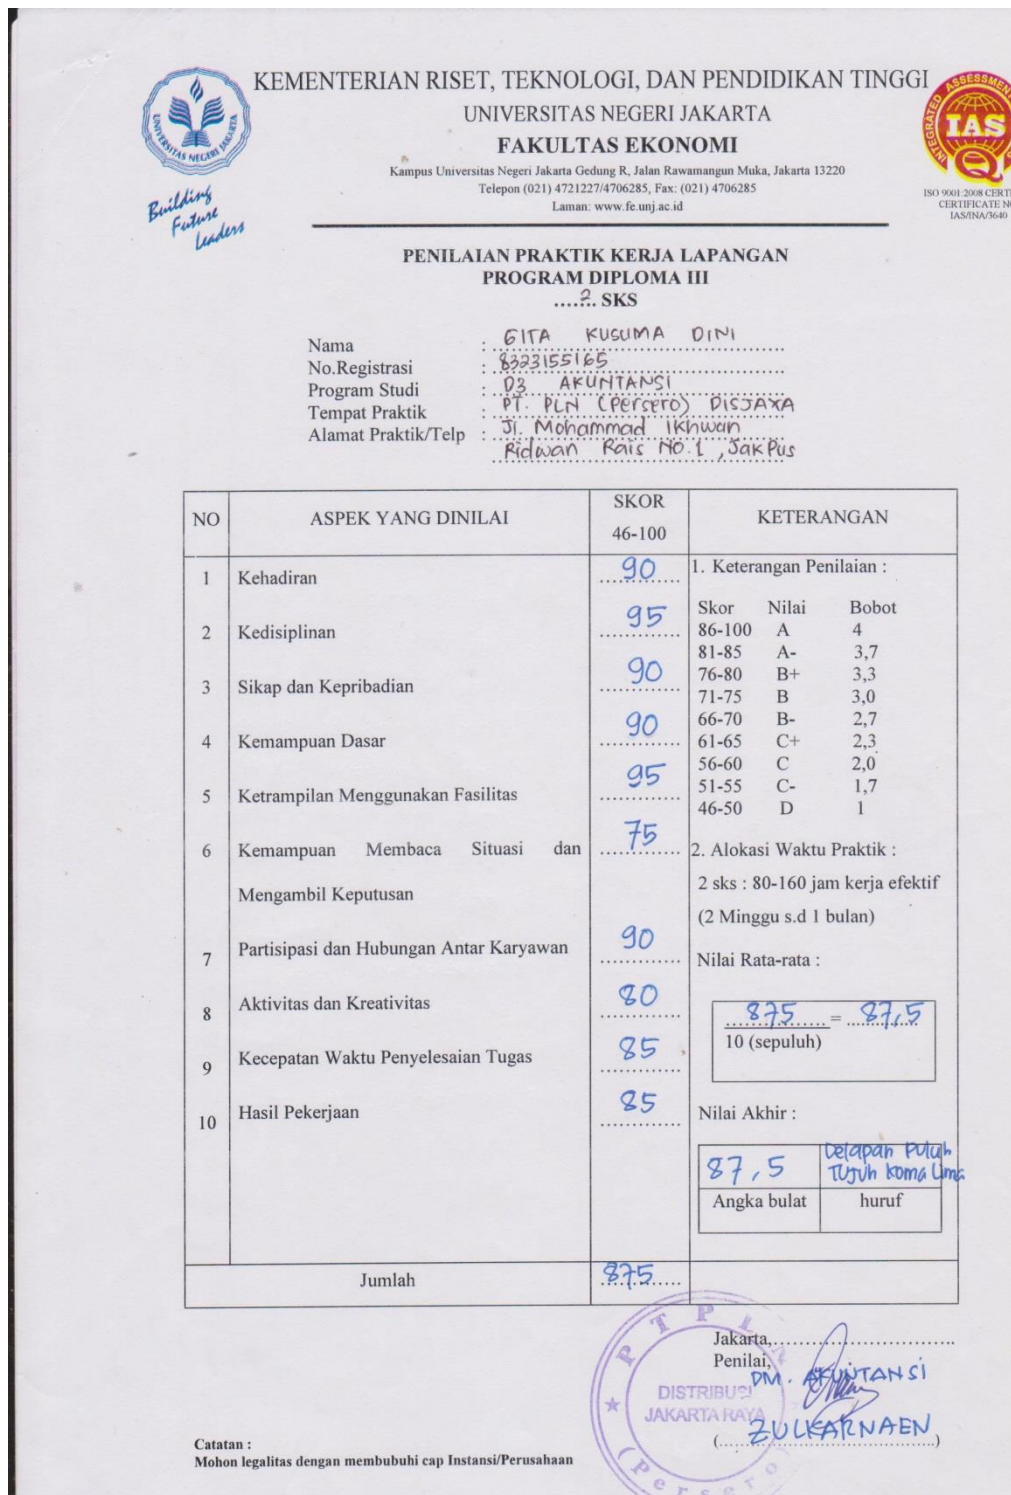 KEMENTERIAN RISET, TEKNOLOGI, DAN PENDIDIKAN TINGGI
UNIVERSITAS NEGERI JAKARTA
FAKULTAS EKONOMI
Kampus Universitas Negeri Jakarta Gedung R, Jalan Rawamangun Muka, Jakarta 13220
Telepon (021) 4721227/4706285, Fax: (021) 4706285
Laman: www.fe.unj.ac.id
UNIVERSITAS NEGERI JAKARTA
Building
Future
Leaders
INTEGRATED ASSESSMEN
IAS
Q
ISO 9001:2008 CERTI
CERTIFICATE N
IAS/INA/3640
PENILAIAN PRAKTIK KERJA LAPANGAN
PROGRAM DIPLOMA III
....2.. SKS
Nama : GITA KUSUMA DINI
No.Registrasi : 8323155165
Program Studi : D3 AKUNTANSI
Tempat Praktik : PT. PLN (Persero) DISJAYA
Alamat Praktik/Telp : Jl. Mohammad Ikhwan
Ridwan Rais NO.1, JakPus
NO ASPEK YANG DINILAI SKOR 46-100 KETERANGAN
1 Kehadiran 90
2 Kedisiplinan 95
3 Sikap dan Kepribadian 90
4 Kemampuan Dasar 90
5 Ketrampilan Menggunakan Fasilitas 95
6 Kemampuan Membaca Situasi dan 75
Mengambil Keputusan
7 Partisipasi dan Hubungan Antar Karyawan 90
8 Aktivitas dan Kreativitas 80
9 Kecepatan Waktu Penyelesaian Tugas 85
10 Hasil Pekerjaan 85
1. Keterangan Penilaian :
Skor Nilai Bobot
86-100 A 4
81-85 A- 3,7
76-80 B+ 3,3
71-75 B 3,0
66-70 B- 2,7
61-65 C+ 2,3
56-60 C 2,0
51-55 C- 1,7
46-50 D 1
2. Alokasi Waktu Praktik :
2 sks : 80-160 jam kerja efektif
(2 Minggu s.d 1 bulan)
Nilai Rata-rata :
875 = 87,5
10 (sepuluh)
Nilai Akhir :
87,5 Delapan Puluh
Tujuh Koma Lima
Angka bulat huruf
Jumlah 875
Jakarta,..............................
Penilai,
DM. AKUNTANSI
(ZULKARNAEN)
PT PLN
DISTRIBUSI
JAKARTA RAYA
(Persero)
Catatan :
Mohon legalitas dengan membubuhi cap Instansi/Perusahaan